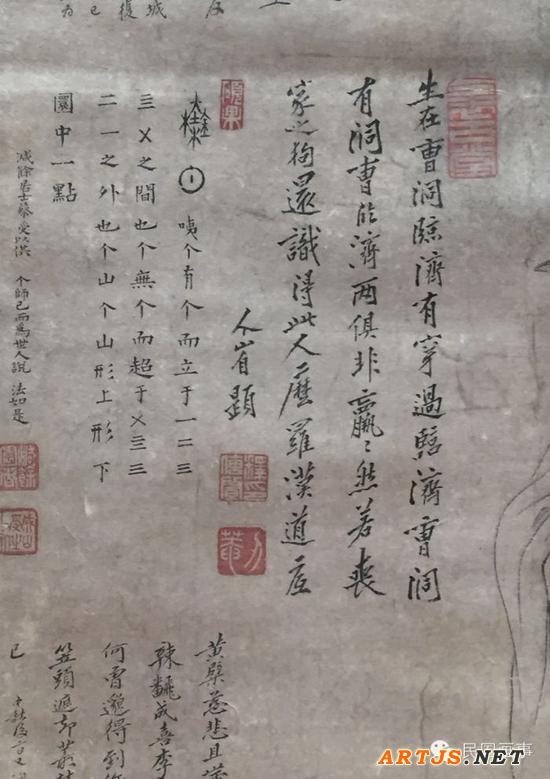 城
復
已
為
生在曹洞臨濟有穿過臨濟曹洞
有洞曹臨濟兩俱非羸〻然若喪
家之狗還識得此人麼羅漢道底
題
咦个有个而立于一二三
三乂之間也个無个而超于乂三三
二一之外也个山个山形上形下
圜中一點
減餘居士蔡受以供 个師已而為世人說 法如是
黃檗慈悲且
棘飜成喜李
何曾邈得到
笠頭遮却叢
已
ARTJS.NET